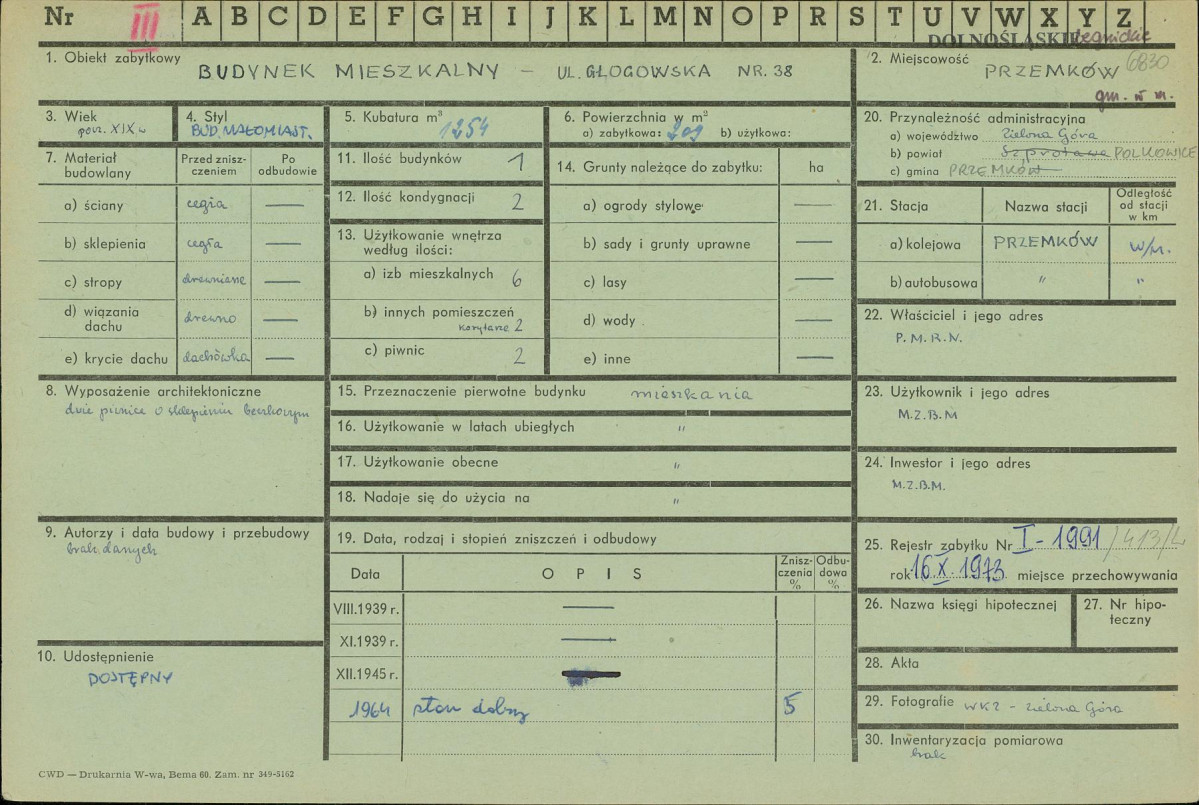 Nr III A B C D E F G H I J K L M N O P R S T U V W X Y Z
DOLNOŚLĄSKIE legnickie
1. Obiekt zabytkowy BUDYNEK MIESZKALNY – UL. GŁOGOWSKA NR. 38
2. Miejscowość PRZEMKÓW 6830
gm. w m.
3. Wiek
pocz. XIX w
4. Styl
BUD. MAŁOMIAST.
5. Kubatura m³
1254
6. Powierzchnia w m²
a) zabytkowa: 209 b) użytkowa:
7. Materiał budowlany
Przed zniszczeniem
Po odbudowie
a) ściany cegła —
b) sklepienia cegła —
c) stropy drewniane —
d) wiązania dachu drewno —
e) krycie dachu dachówka —
8. Wyposażenie architektoniczne
dwie piwnice o sklepieniu beczkowym
9. Autorzy i data budowy i przebudowy
brak danych
10. Udostępnienie
DOSTĘPNY
11. Ilość budynków 1
12. Ilość kondygnacji 2
13. Użytkowanie wnętrza
według ilości:
a) izb mieszkalnych 6
b) innych pomieszczeń
korytarze 2
c) piwnic 2
14. Grunty należące do zabytku: ha
a) ogrody stylowe —
b) sady i grunty uprawne —
c) lasy —
d) wody —
e) inne —
15. Przeznaczenie pierwotne budynku mieszkania
16. Użytkowanie w latach ubiegłych "
17. Użytkowanie obecne "
18. Nadaje się do użycia na "
19. Data, rodzaj i stopień zniszczeń i odbudowy
Data O P I S Zniszczenia % Odbudowa %
VIII.1939 r. —
XI.1939 r. —
XII.1945 r. —
1964 stan dobry 5
20. Przynależność administracyjna
a) województwo Zielona Góra
b) powiat Szprotawa POLKOWICE
c) gmina PRZEMKÓW
21. Stacja Nazwa stacji Odległość od stacji w km
a) kolejowa PRZEMKÓW W/M.
b) autobusowa " "
22. Właściciel i jego adres
P. M. R. N.
23. Użytkownik i jego adres
M.Z.B.M
24. Inwestor i jego adres
M.Z.B.M.
25. Rejestr zabytku Nr I-1991 /413/L
rok 16 X. 1973 miejsce przechowywania
26. Nazwa księgi hipotecznej
27. Nr hipoteczny
28. Akta
29. Fotografie WKZ – Zielona Góra
30. Inwentaryzacja pomiarowa
brak
CWD — Drukarnia W-wa, Bema 60. Zam. nr 349-5162